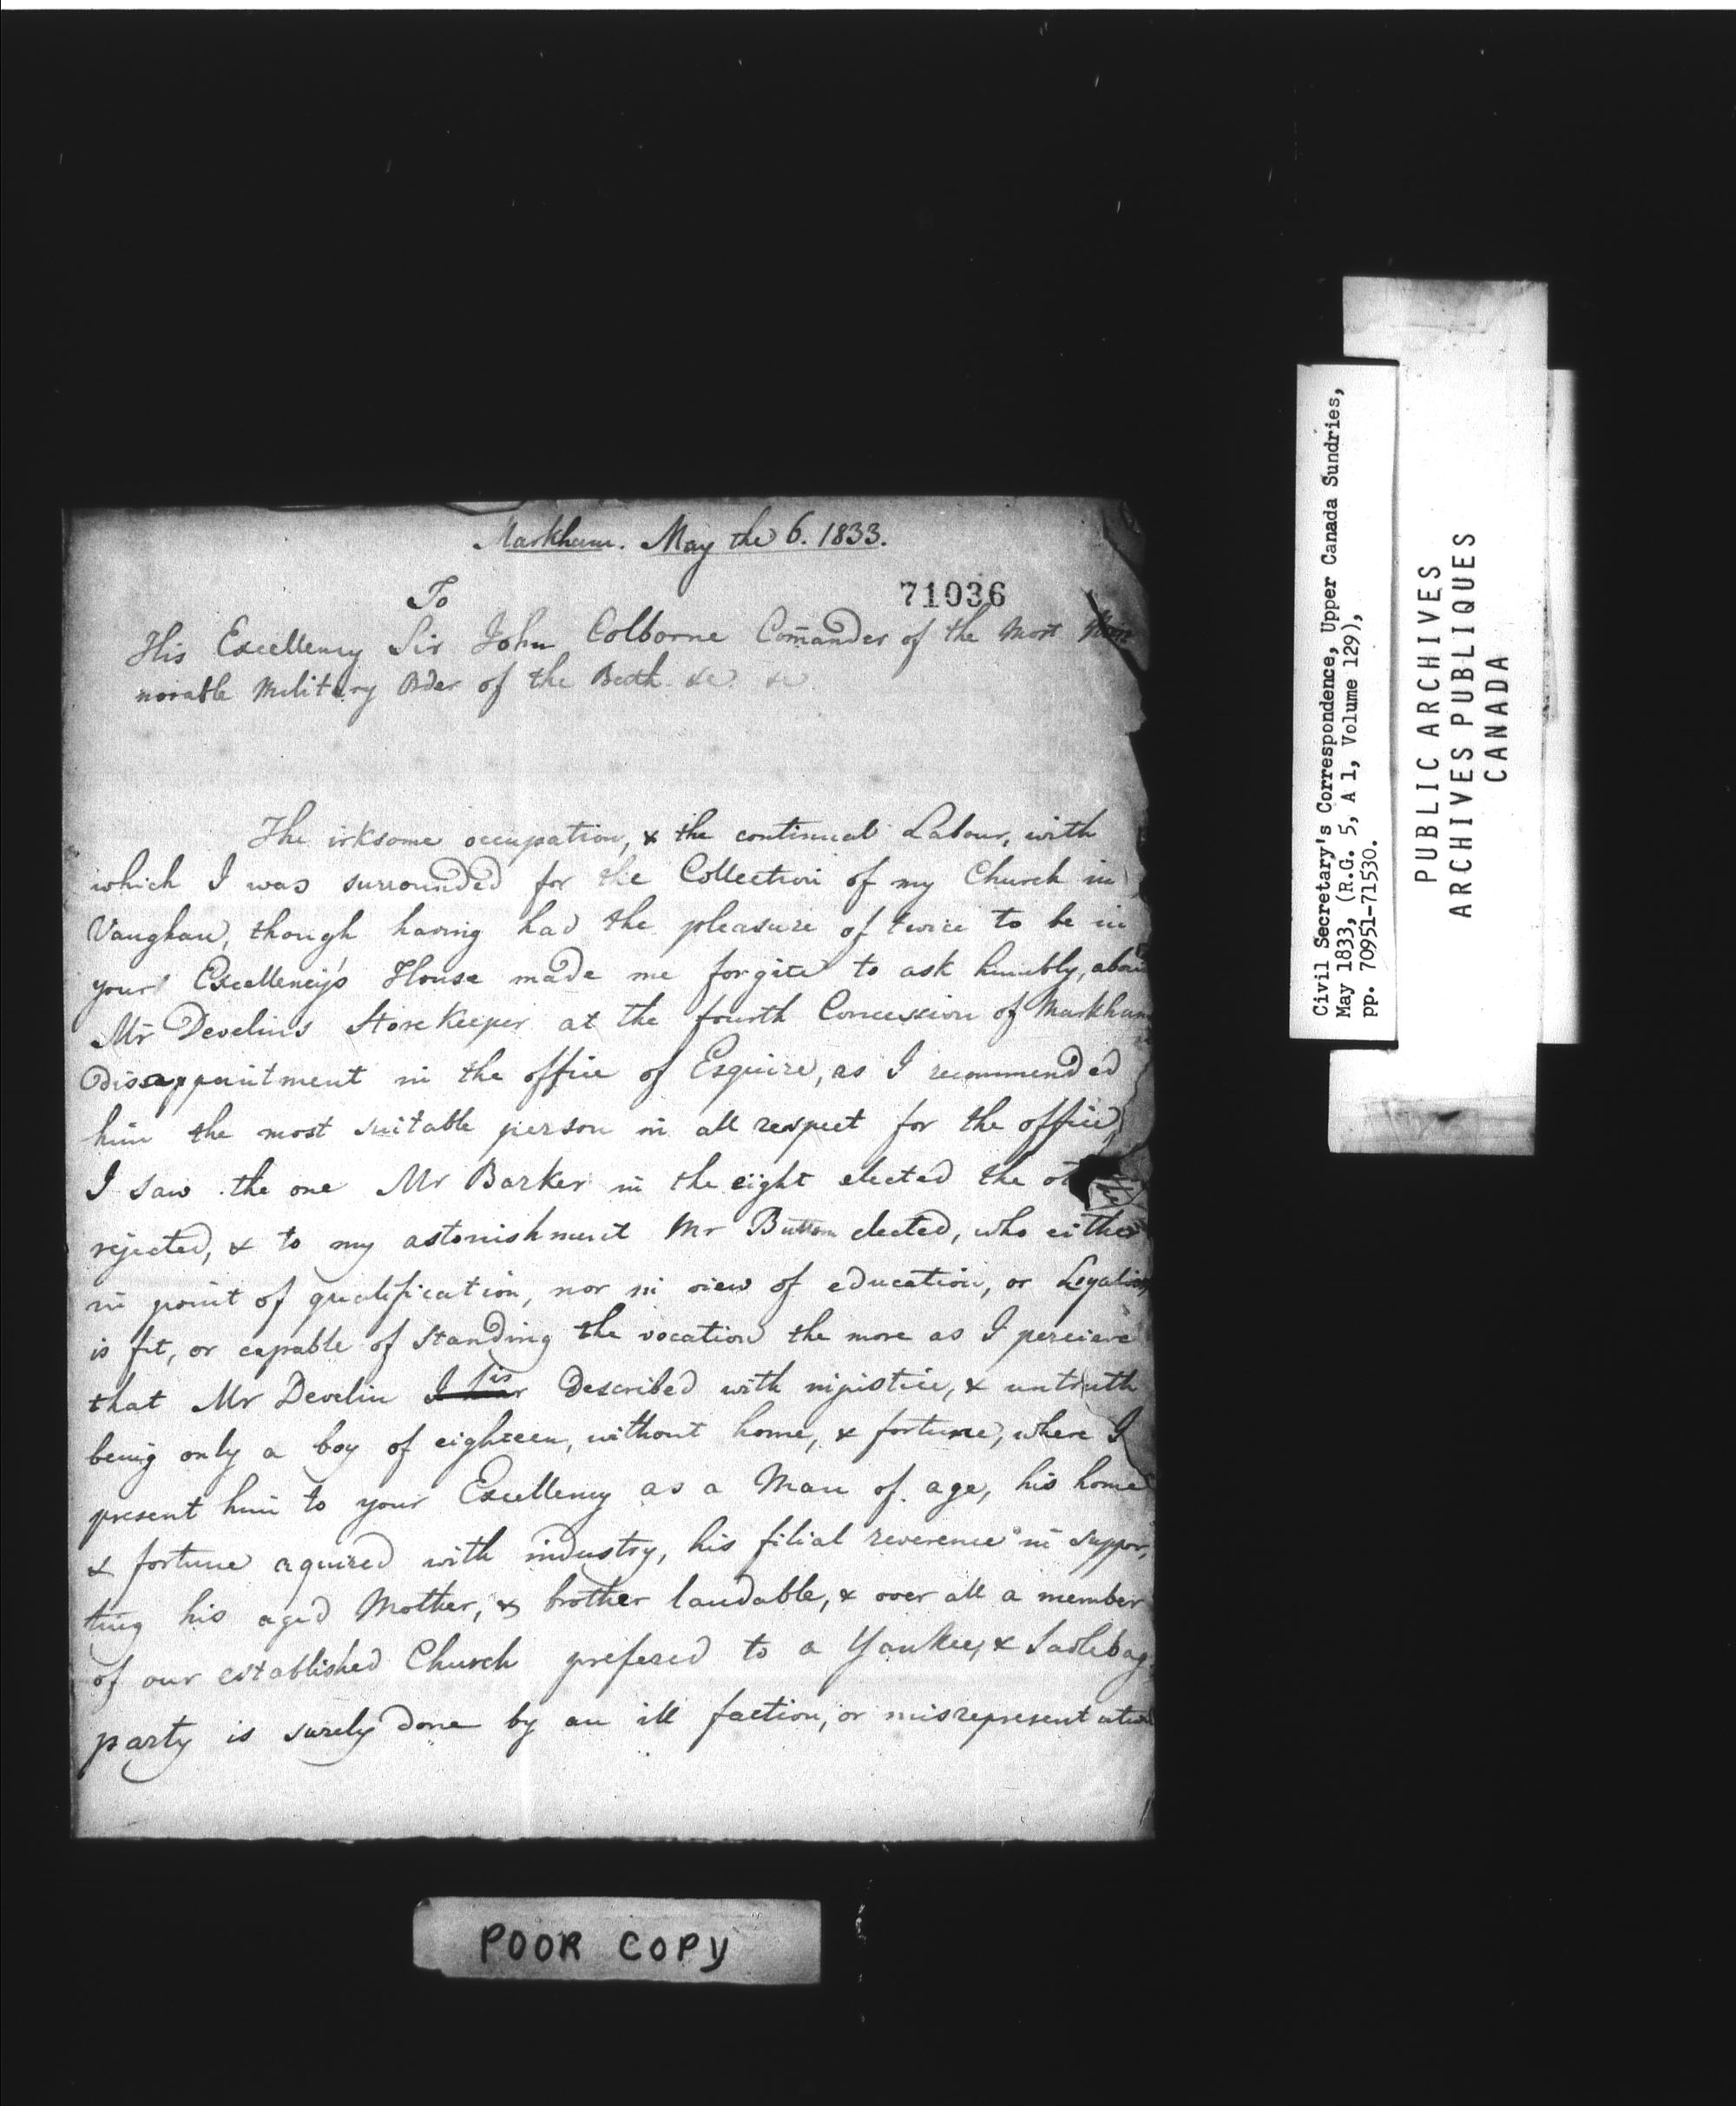 Markham. May the 6. 1833.
71036
To
His Excellency Sir John Colborne Comander of the Most Hon
norable Military Order of the Bath &c &c
The irksome occupation, & the continual Labour, with
which I was surrounded for the Collection of my Church in
Vaughan, though having had the pleasure of twice to be in
your Excellency's House made me forgite to ask humbly, about
Mr Develins StoreKeeper at the fourth Concession of Markham
Disappointment in the office of Esquire, as I recommended
him the most suitable person in all respect for the office
I saw the one Mr Barker in the eight elected the ot
rejected, & to my astonishment Mr Button elected, who either
in point of qualification, nor in view of education, or
is fit, or capable of standing the vocation the more as I percieve
that Mr Develin is described with injustice, & untruth
being only a boy of eighteen, without home, & fortune, where I
present him to your Excellency as a Man of age, his home
& fortune aquired with industry, his filial reverence in suppor,
ting his aged Mother, & brother laudable, & over all a member
of our established Church prefered to a Yankee, & Sadlebag
party is surely done by an ill faction, or misrepresentation
POOR COPY
Civil Secretary's Correspondence, Upper Canada Sundries,
May 1833, (R.G. 5, A 1, Volume 129),
pp. 70951-71530.
PUBLIC ARCHIVES
ARCHIVES PUBLIQUES
CANADA